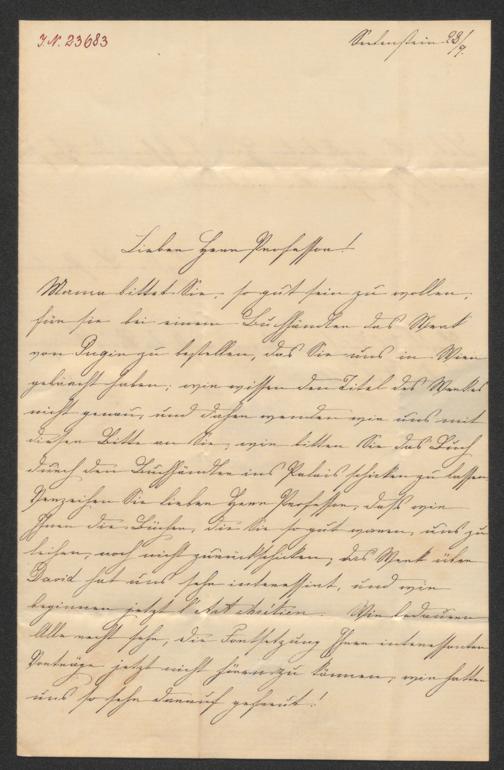 J.N. 23683
Seebenstein 28/9.
Lieber Herr Professor!
Mama bittet Sie, so gut sein zu wollen,
für sie bei einem Buchhändler das Werk
von Pugin zu bestellen, das Sie uns in Wien
gebracht haben; wir wissen den Titel des Werkes
nicht genau, und daher wenden wir uns mit
dieser Bitte an Sie, wir bitten Sie das Buch
durch den Buchhändler ins Palais schicken zu lassen.
Verzeihen Sie lieber Herr Professor, daß wir
Ihnen die Bücher, die Sie so gut waren, uns zu
leihen, noch nicht zurückschicken, das Werk über
David hat uns sehr interessirt, und wir
beginnen jetzt l'Art chrétien. Wir bedauern
Alle recht sehr, die Fortsetzung Ihrer interessanten
Vorträge jetzt nicht hören zu können, wir hatten
uns so sehr darauf gefreut!